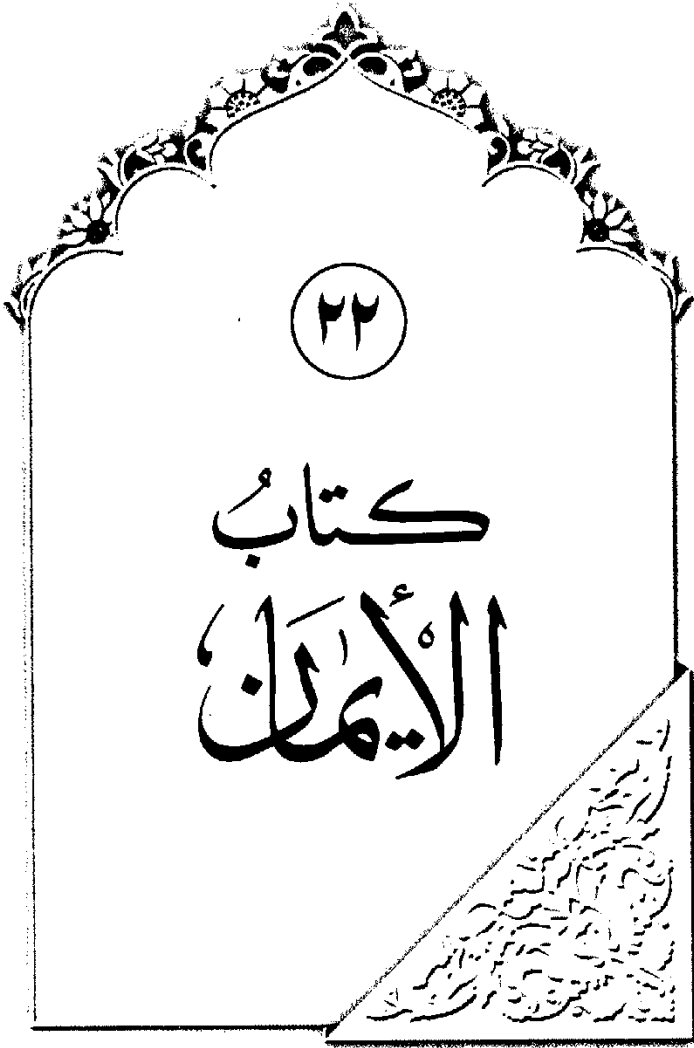 ٢٢
كتابُ
الأيمان